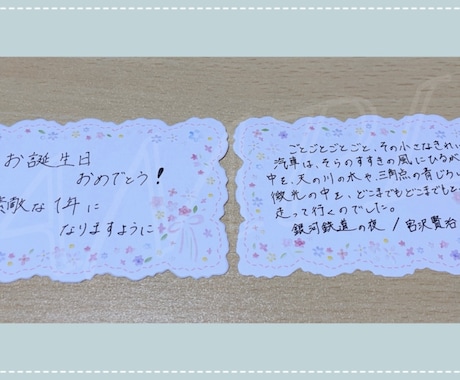 お誕生日
おめでとう!
素敵な1年に
なりますように
ごとごとごとごと、その小さなきれい
汽車は、そらのすすきの風にひるが
中を、天の川の水や、三角点の青じろ
微光の中を、どこまでもどこまでもと
走って行くのでした。
銀河鉄道の夜 / 宮沢賢治